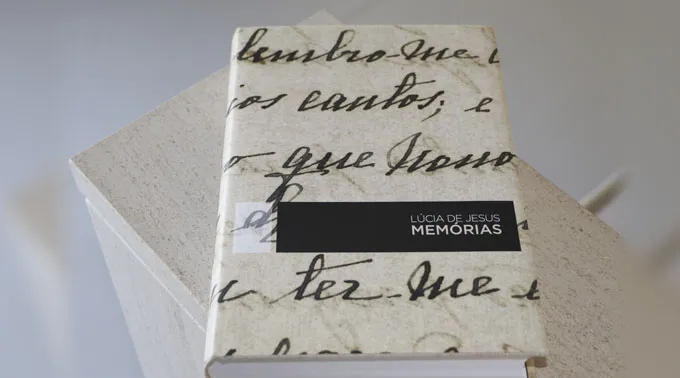 lembro-me
jos cantos; e
o que nono
LÚCIA DE JESUS
MEMÓRIAS
ter-me